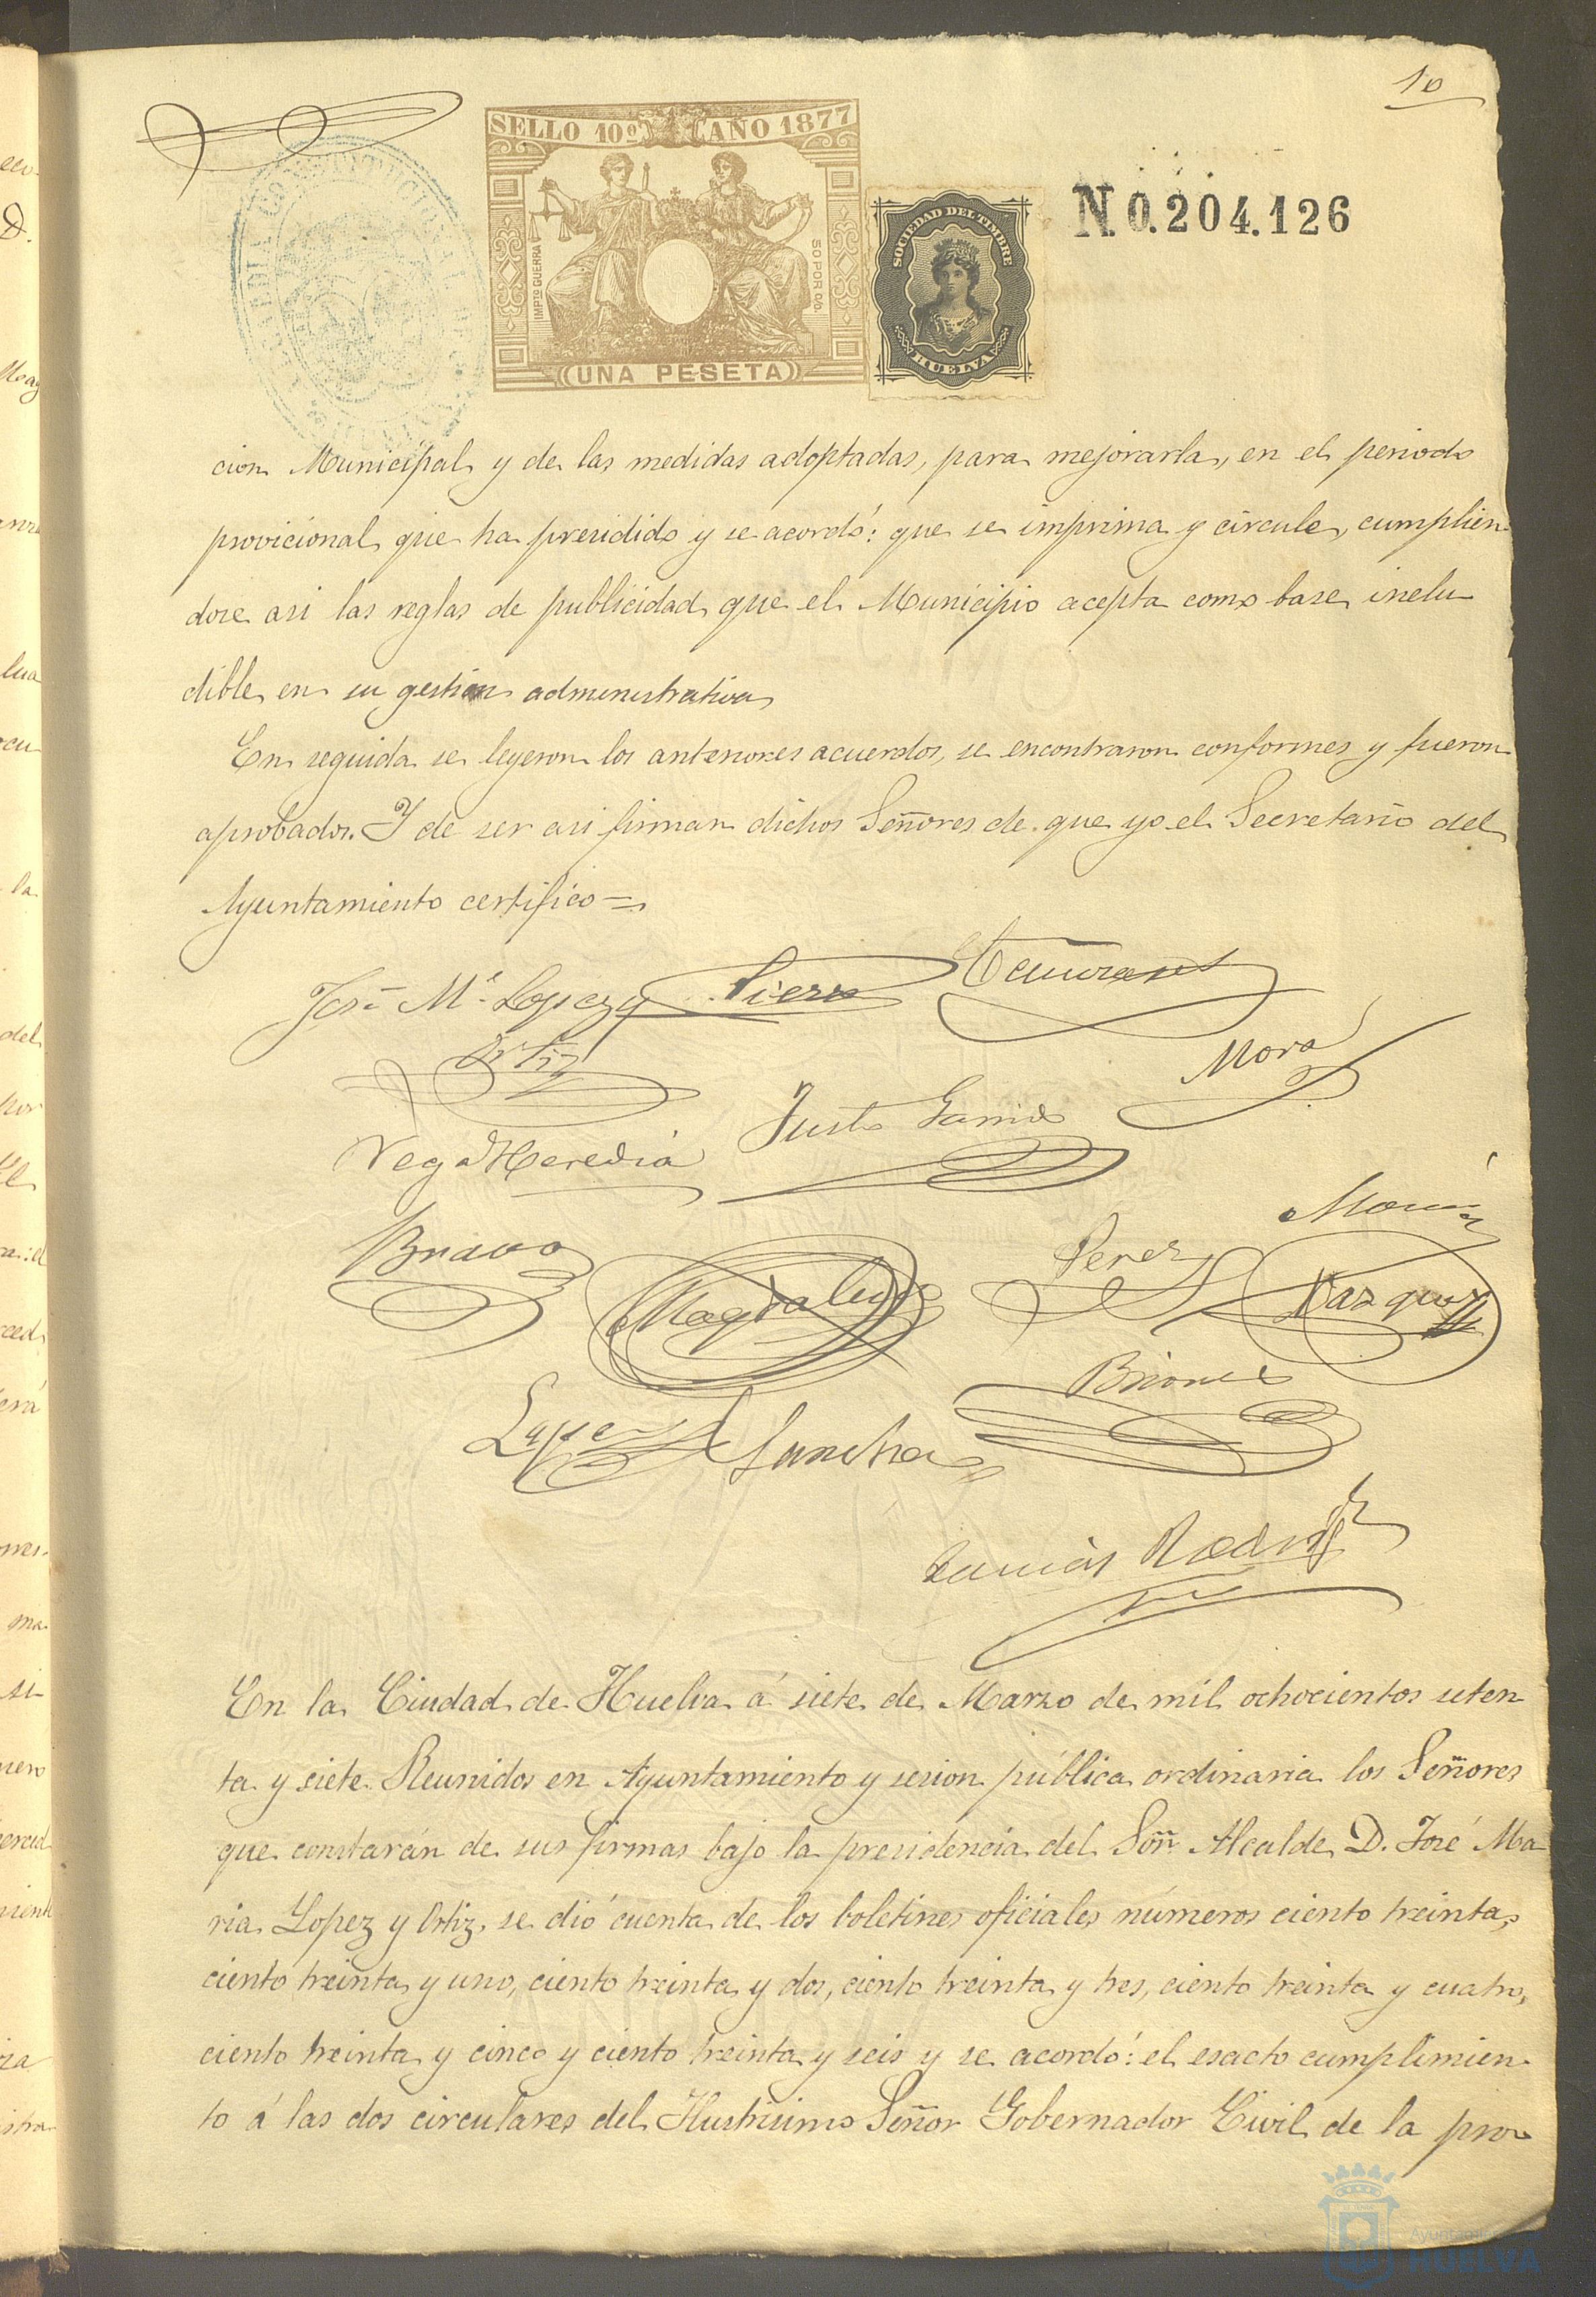 10
SELLO 10º AÑO 1877
IMPTO GUERRA
50 POR 0/0.
UNA PESETA
SOCIEDAD DEL TIMBRE
HUELVA
N. 0.204.126
cion Municipal y de las medidas adoptadas, para mejorarla, en el periodo
provicional que ha presidido y se acordó: que se imprima y circule, cumplien
dose asi las reglas de publicidad que el Municipio acepta como base inelu
dible en su gestion administrativa
En seguida se leyeron los anteriores acuerdos, se encontraron conformes y fueron
aprobados. Y de ser asi firman dichos Señores de que yo el Secretario del
Ayuntamiento certifico=
José Mª Lopez y
Ortiz
Sierra
Mora
Vega Heredia
Justo Garrido
Bravo
Magdaleno
Perez
Marin
Vazquez
Lopez
Sanchez
Briones
En la Ciudad de Huelva á siete de Marzo de mil ochocientos seten
ta y siete. Reunidos en Ayuntamiento y sesion pública ordinaria los Señores
que constarán de sus firmas bajo la presidencia del Soñr Alcalde D. José Ma
ria Lopez y Ortiz, se dió cuenta de los boletines oficiales números ciento treinta,
ciento treinta y uno, ciento treinta y dos, ciento treinta y tres, ciento treinta y cuatro,
ciento treinta y cinco y ciento treinta y seis y se acordó: el esacto cumplimien
to á las dos circulares del Ilustrisimo Señor Gobernador Civil de la pro
HUELVA